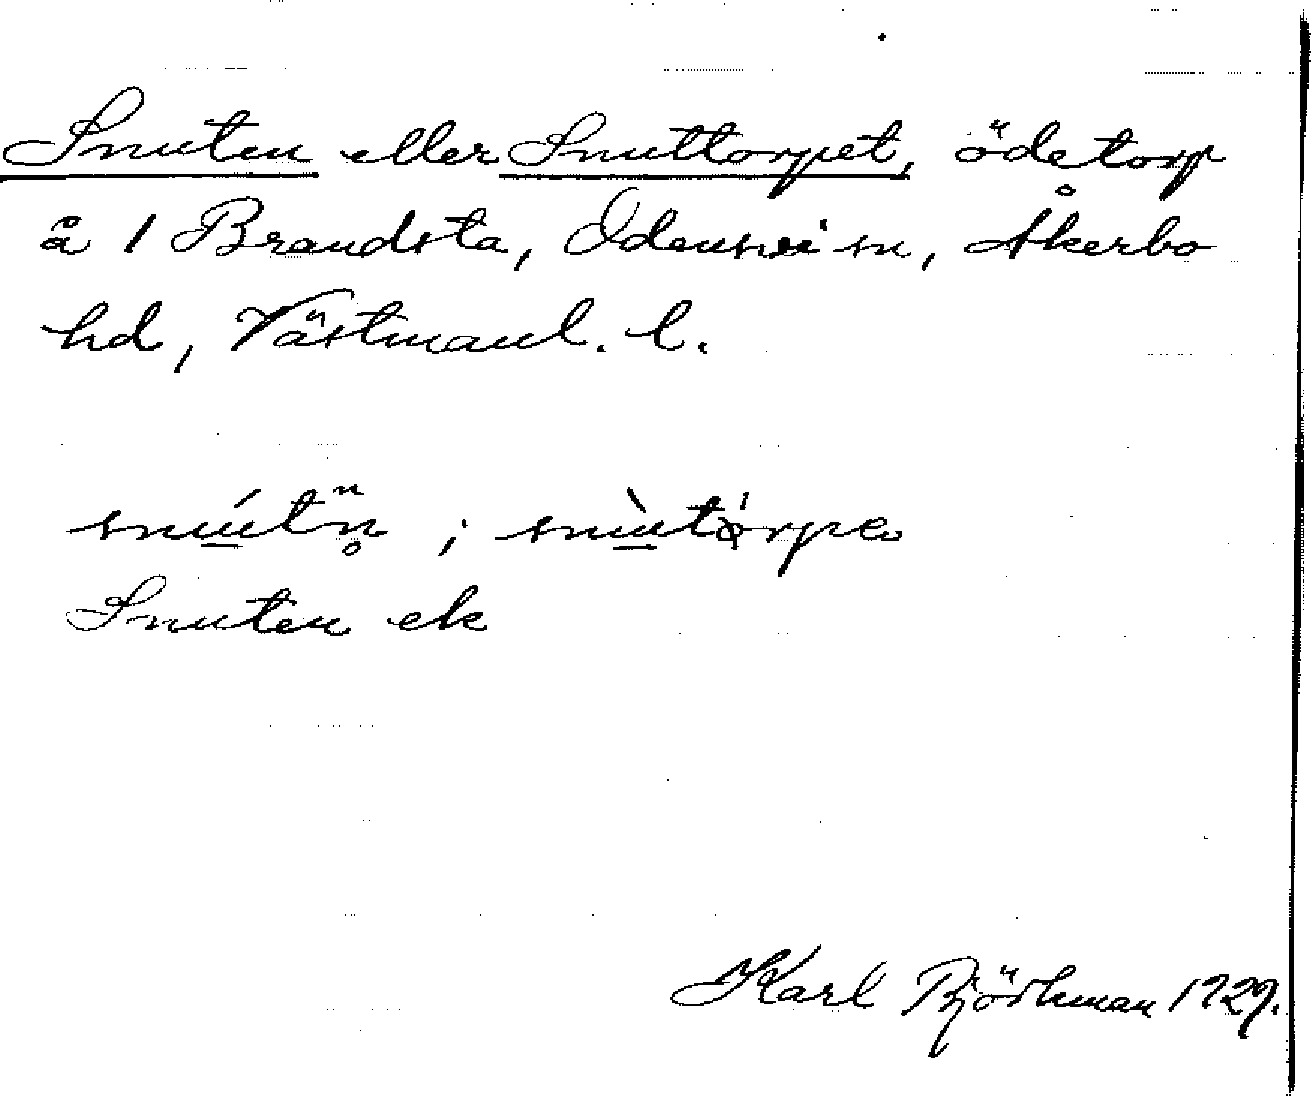 Snuten eller Snuttorpet, ödetorp
å 1 Brandsta, Odensvi sn, Åkerbo
hd, Västmanl. l.
snútn̥ ; snùtǫrpe
Snuten ek
Karl Björkman 1929.